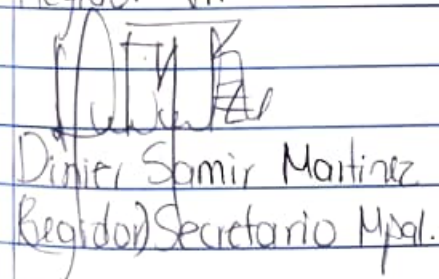 Dinier Samir Martinez
Regidor) Secretario Mpal.